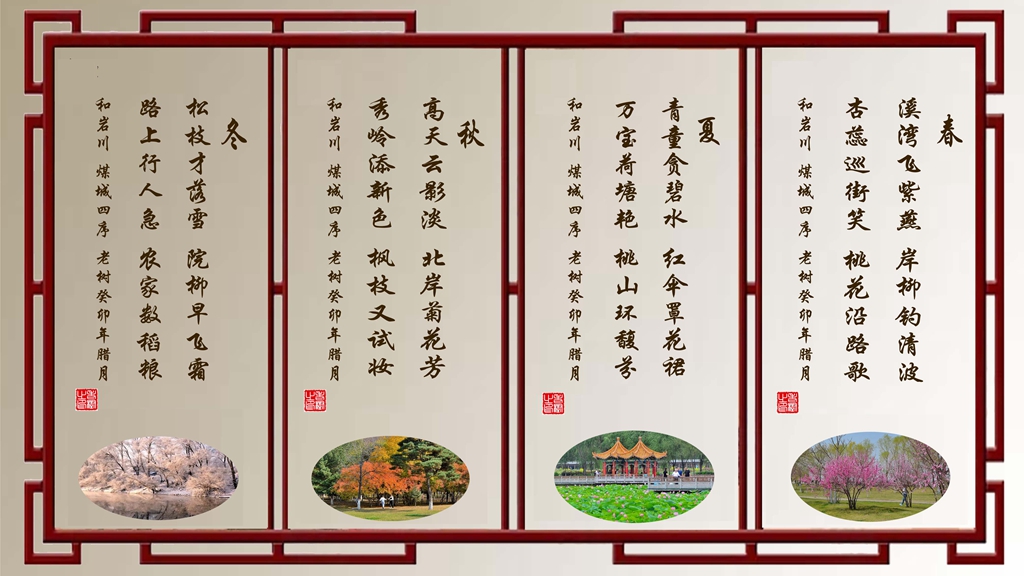 春
溪湾飞紫燕 岸柳钓清波
杏蕊巡街笑 桃花沿路歌
和岩川 煤城四序 老树癸卯年腊月
夏
青童贪碧水 红伞罩花裙
万宝荷塘艳 桃山环馥芬
和岩川 煤城四序 老树癸卯年腊月
秋
高天云影淡 北岸菊花芳
秀岭添新色 枫枝又试妆
和岩川 煤城四序 老树癸卯年腊月
冬
松枝才落雪 院柳早飞霜
路上行人急 农家数稻粮
和岩川 煤城四序 老树癸卯年腊月